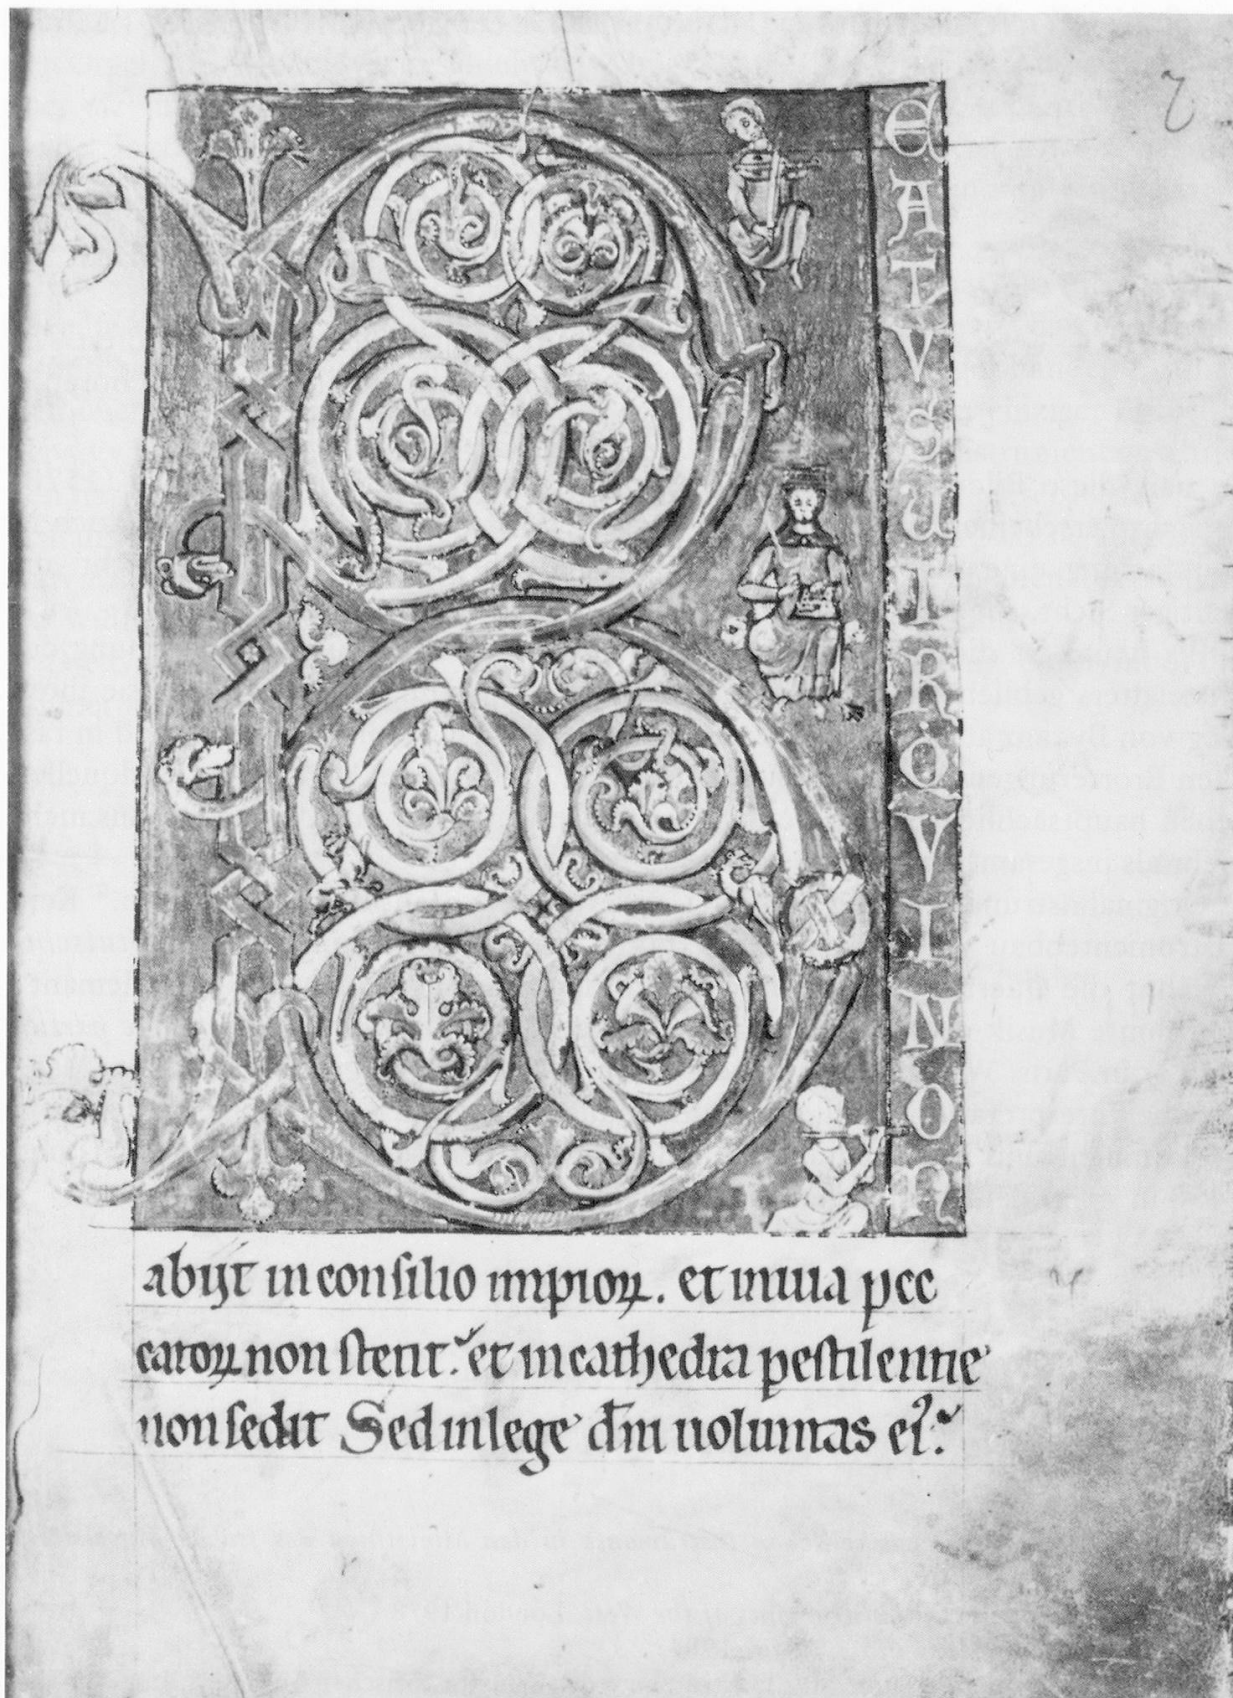 2
BEATVS UIR QVI NON
abijt in conſilio impioꝝ. et in uia pec
catoꝝ non ſtetit. et in cathedra peſtilentie
non ſedit Sed in lege dn̄i uoluntas eiꝰ.